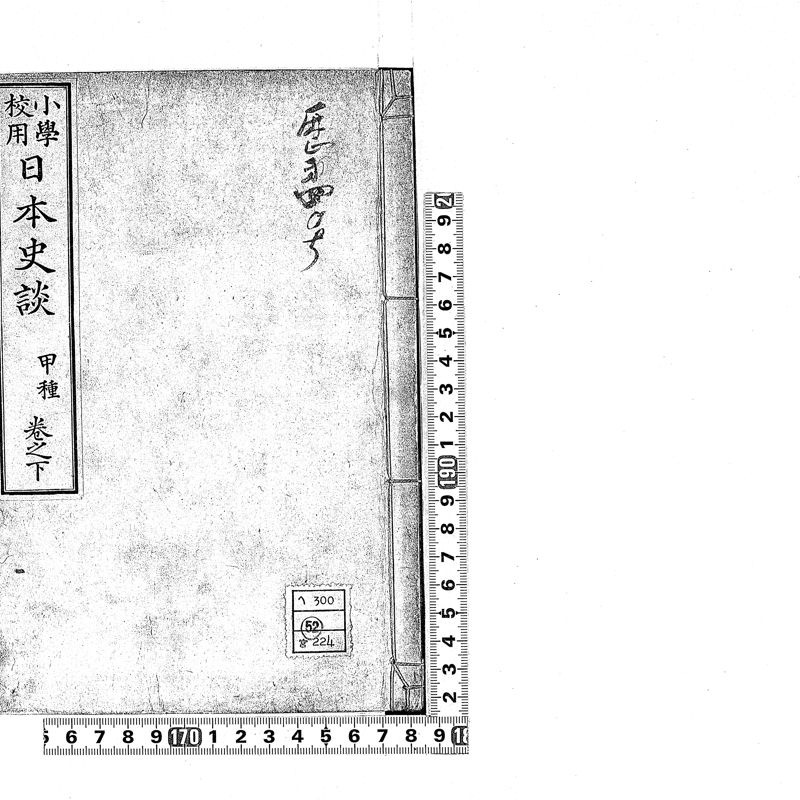 小學
校用
日本史談
甲種
卷之下
歴第四〇号
ヘ 300
52
宮 224
2 9 8 7 6 5 4 3 2 1 190 9 8 7 6 5 4 3 2
6 7 8 9 170 1 2 3 4 5 6 7 8 9 18